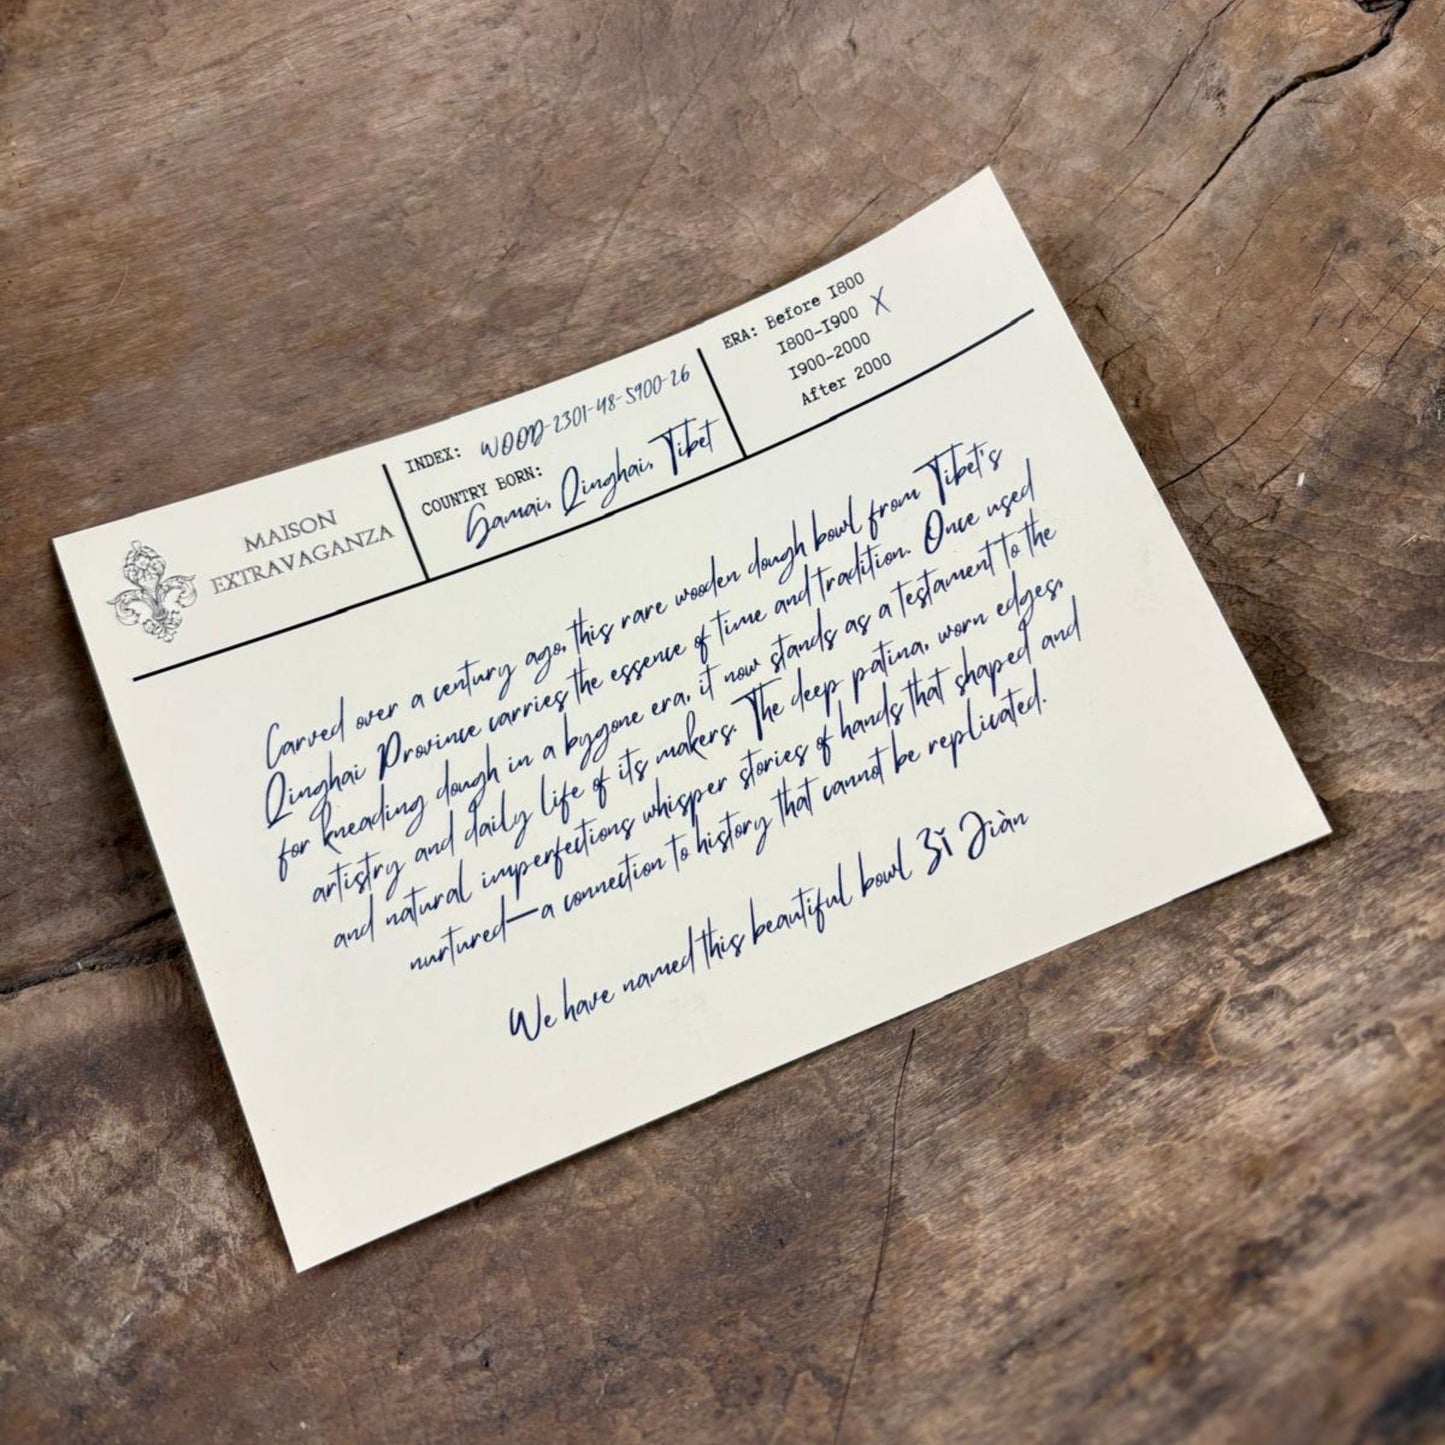 MAISON
EXTRAVAGANZA
INDEX: WOOD-2301-48-5900-26
COUNTRY BORN:
Gamai, Qinghai, Tibet
ERA: Before 1800
1800-1900 X
1900-2000
After 2000
Carved over a century ago, this rare wooden dough bowl from Tibet's
Qinghai Province carries the essence of time and tradition. Once used
for kneading dough in a bygone era, it now stands as a testament to the
artistry and daily life of its makers. The deep patina, worn edges,
and natural imperfections whisper stories of hands that shaped and
nurtured—a connection to history that cannot be replicated.
We have named this beautiful bowl Zǐ Jiàn